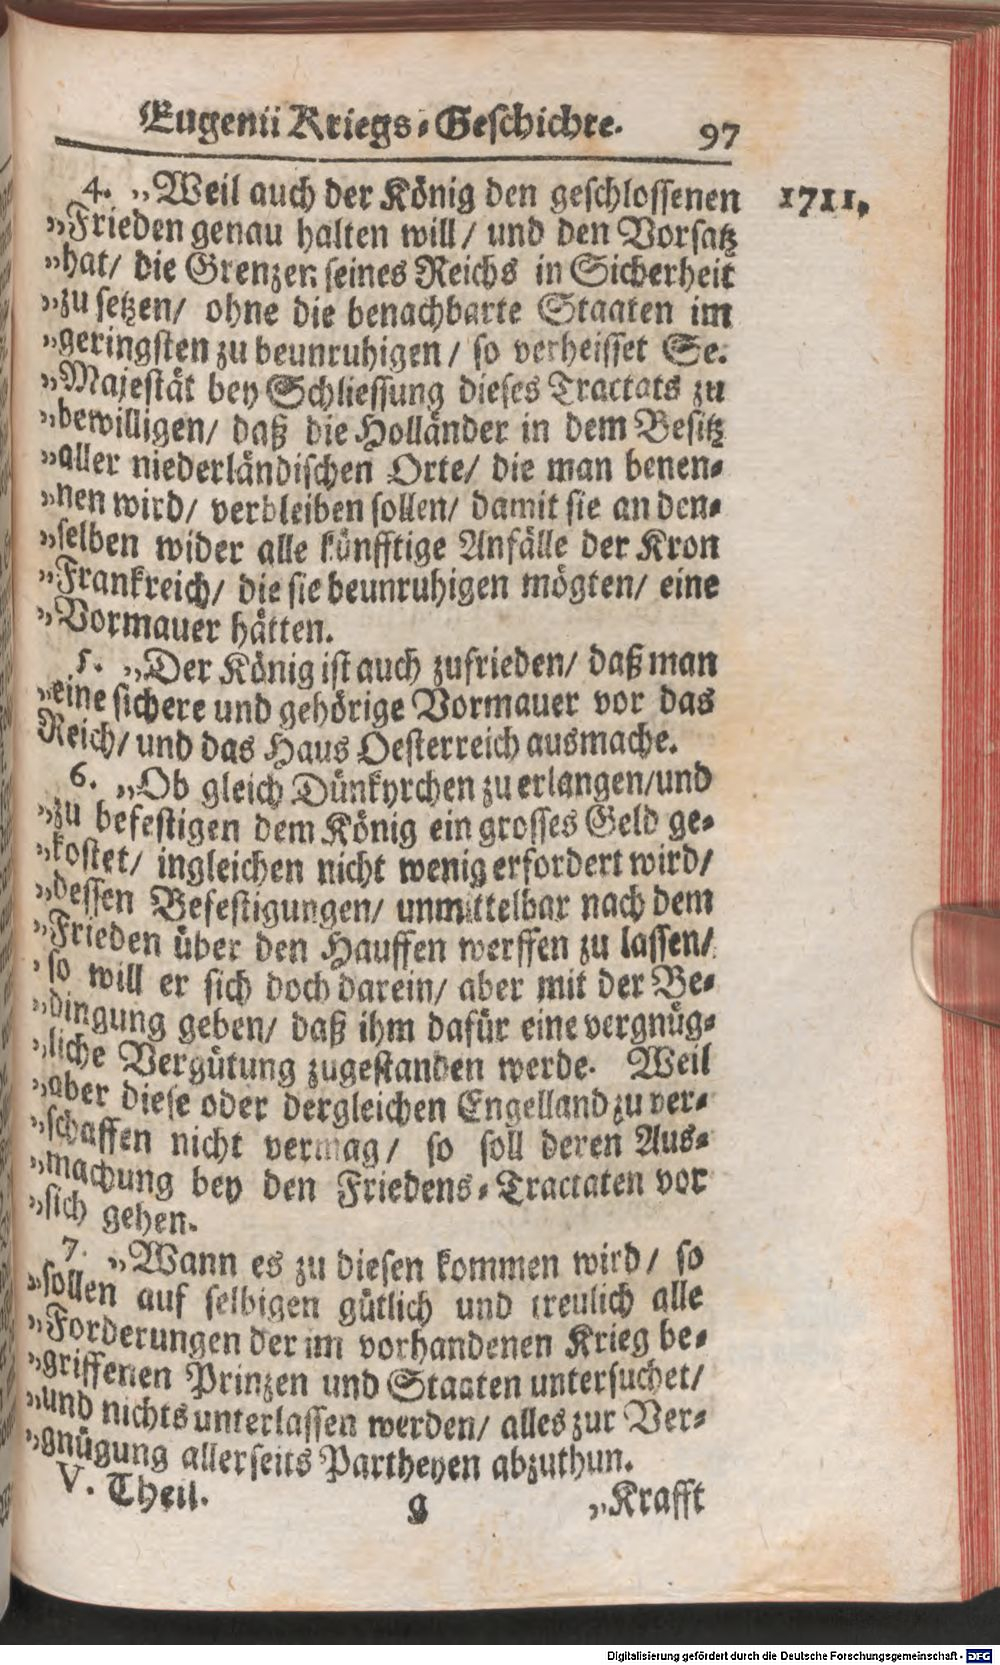 Eugenii Kriegs-Geschichte. 97
4. „Weil auch der König den geschlossenen 1711.
„Frieden genau halten will/ und den Vorsatz
„hat/ die Grenzen seines Reichs in Sicherheit
„zu setzen/ ohne die benachbarte Staaten im
„geringsten zu beunruhigen/ so verheisset Se.
„Majestät bey Schliessung dieses Tractats zu
„bewilligen/ daß die Holländer in dem Besitz
„aller niederländischen Orte/ die man benen-
„nen wird/ verbleiben sollen/ damit sie an den-
„selben wider alle künfftige Anfälle der Kron
„Frankreich/ die sie beunruhigen mögten/ eine
„Vormauer hätten.
5. „Der König ist auch zufrieden/ daß man
„eine sichere und gehörige Vormauer vor das
Reich/ und das Haus Oesterreich ausmache.
6. „Ob gleich Dünkyrchen zu erlangen/und
„zu befestigen dem König ein grosses Geld ge-
„kostet/ ingleichen nicht wenig erfordert wird/
„dessen Befestigungen/ unmittelbar nach dem
„Frieden über den Hauffen werffen zu lassen/
„so will er sich doch darein/ aber mit der Be-
„dingung geben/ daß ihm dafür eine vergnüg-
„liche Vergütung zugestanden werde. Weil
„aber diese oder dergleichen Engelland zu ver-
„schaffen nicht vermag/ so soll deren Aus-
„machung bey den Friedens-Tractaten vor
„sich gehen.
7. „Wann es zu diesen kommen wird/ so
„sollen auf selbigen gütlich und treulich alle
„Forderungen der im vorhandenen Krieg be-
„griffenen Prinzen und Staaten untersuchet/
„und nichts unterlassen werden/ alles zur Ver-
„gnügung allerseits Partheyen abzuthun.
V. Theil. g „Krafft
Digitalisierung gefördert durch die Deutsche Forschungsgemeinschaft - DFG